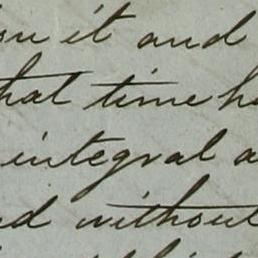 it and
that time
integral a
without